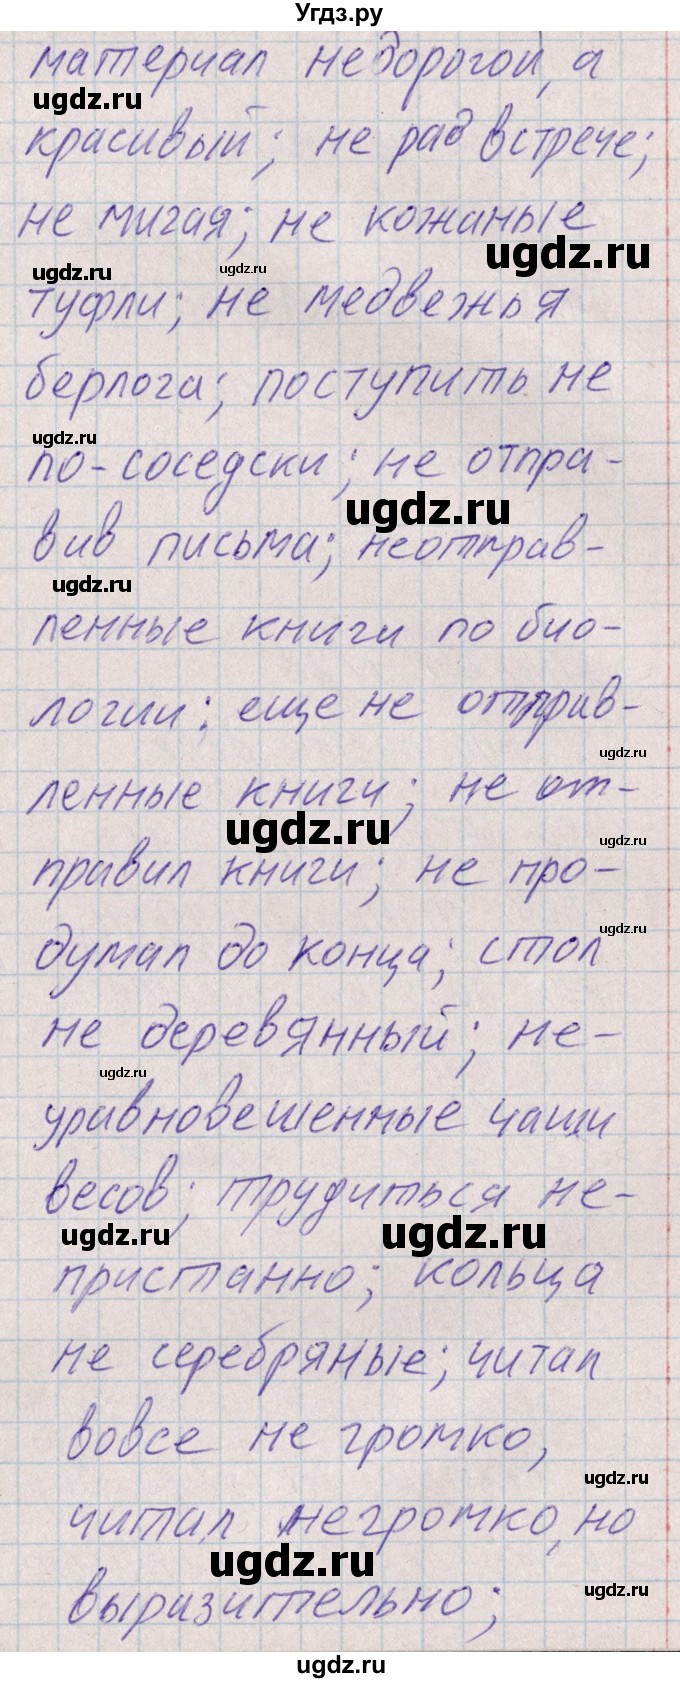 Угдз.ру
материал недорогой, а
ugdz.ru
красивый; не рад встрече;
не мигая; не кожаные
ugdz.ru
ugdz.ru
ugdz.ru
туфли; не медвежья
берлога; поступить не
ugdz.ru
по-соседски; не отпра-
ugdz.ru
вив письма; неотправ-
ugdz.ru
ленные книги по био-
логии; еще не отправ-
ugdz.ru
ленные книги; не от-
ugdz.ru
ugdz.ru
правил книги; не про-
ugdz.ru
думал до конца; стол
не деревянный; не-
ugdz.ru
уравновешенные чаши
весов; трудиться не-
ugdz.ru
ugdz.ru
пристанно; кольца
не серебряные; читал
вовсе не громко,
ugdz.ru
читал негромко, но
ugdz.ru
ugdz.ru
выразительно;
ugdz.ru